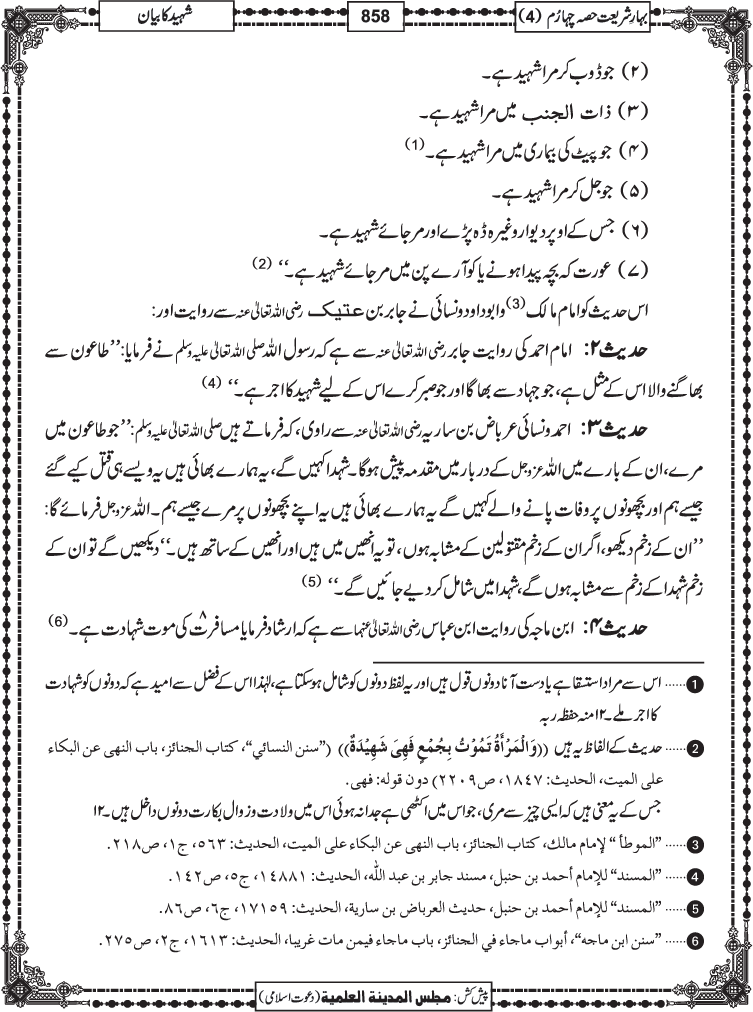 بہارِ شریعت حصہ چہارم (4)
858
شہید کا بیان
(۲) جو ڈوب کر مرا شہید ہے۔
(۳) ذات الجنب میں مرا شہید ہے۔
(۴) جو پیٹ کی بیماری میں مرا شہید ہے۔(1)
(۵) جو جل کر مرا شہید ہے۔
(۶) جس کے اوپر دیوار وغیرہ ڈہ پڑے اور مر جائے شہید ہے۔
(۷) عورت کہ بچہ پیدا ہونے یا کوآرے پن میں مر جائے شہید ہے۔‘‘ (2)
اس حدیث کو امام مالک(3) و ابو داود و نسائی نے جابر بن عتیک رضی اللہ تعالیٰ عنہ سے روایت اور:
حدیث ۲: امام احمد کی روایت جابر رضی اللہ تعالیٰ عنہ سے ہے کہ رسول اللہ صلی اللہ تعالیٰ علیہ وسلم نے فرمایا: ’’طاعون سے
بھاگنے والا اس کے مثل ہے، جو جہاد سے بھاگا اور جو صبر کرے اس کے لیے شہید کا اجر ہے۔‘‘ (4)
حدیث ۳: احمد و نسائی عرباض بن ساریہ رضی اللہ تعالیٰ عنہ سے راوی، کہ فرماتے ہیں صلی اللہ تعالیٰ علیہ وسلم: ’’جو طاعون میں
مرے، ان کے بارے میں اللہ عزوجل کے دربار میں مقدمہ پیش ہوگا۔ شہدا کہیں گے، یہ ہمارے بھائی ہیں یہ ویسے ہی قتل کیے گئے
جیسے ہم اور بچھونوں پر وفات پانے والے کہیں گے یہ ہمارے بھائی ہیں یہ اپنے بچھونوں پر مرے جیسے ہم۔ اللہ عزوجل فرمائے گا:
’’ان کے زخم دیکھو، اگر ان کے زخم مقتولین کے مشابہ ہوں، تو یہ انھیں میں ہیں اور انھیں کے ساتھ ہیں۔‘‘ دیکھیں گے تو ان کے
زخم شہدا کے زخم سے مشابہ ہوں گے، شہدا میں شامل کر دیے جائیں گے۔‘‘ (5)
حدیث ۴: ابن ماجہ کی روایت ابن عباس رضی اللہ تعالیٰ عنہما سے ہے کہ ارشاد فرمایا مسافرت۸ کی موت شہادت ہے۔(6)
1 ...... اس سے مراد استسقا ہے یا دست آنا دونوں قول ہیں اور یہ لفظ دونوں کو شامل ہوسکتا ہے، لہٰذا اس کے فضل سے امید ہے کہ دونوں کو شہادت
کا اجر ملے۔ ۱۲ منہ حفظہ ربہ
2 ...... حدیث کے الفاظ یہ ہیں ((وَالْمَرْأَةُ تَمُوْتُ بِجُمْعٍ فَهِيَ شَهِيْدَةٌ)) (”سنن النسائي“، كتاب الجنائز، باب النهى عن البكاء
على الميت، الحديث: ١٨٤٧، ص٢٢٠٩) دون قوله: فهى.
جس کے یہ معنی ہیں کہ ایسی چیز سے مری، جو اس میں اکٹھی ہے جدا نہ ہوئی اس میں ولادت و زوال بکارت دونوں داخل ہیں۔ ۱۲
3 ...... ”الموطأ“ لإمام مالك، كتاب الجنائز، باب النهى عن البكاء على الميت، الحديث: ٥٦٣، ج١، ص٢١٨.
4 ...... ”المسند“ للإمام أحمد بن حنبل، مسند جابر بن عبد الله، الحديث: ١٤٨٨١، ج٥، ص١٤٢.
5 ...... ”المسند“ للإمام أحمد بن حنبل، حديث العرباض بن سارية، الحديث: ١٧١٥٩، ج٦، ص٨٦.
6 ...... ”سنن ابن ماجه“، أبواب ماجاء في الجنائز، باب ماجاء فيمن مات غريبا، الحديث: ١٦١٣، ج٢، ص٢٧٥.
پیش کش: مجلس المدينة العلمية (دعوتِ اسلامی)